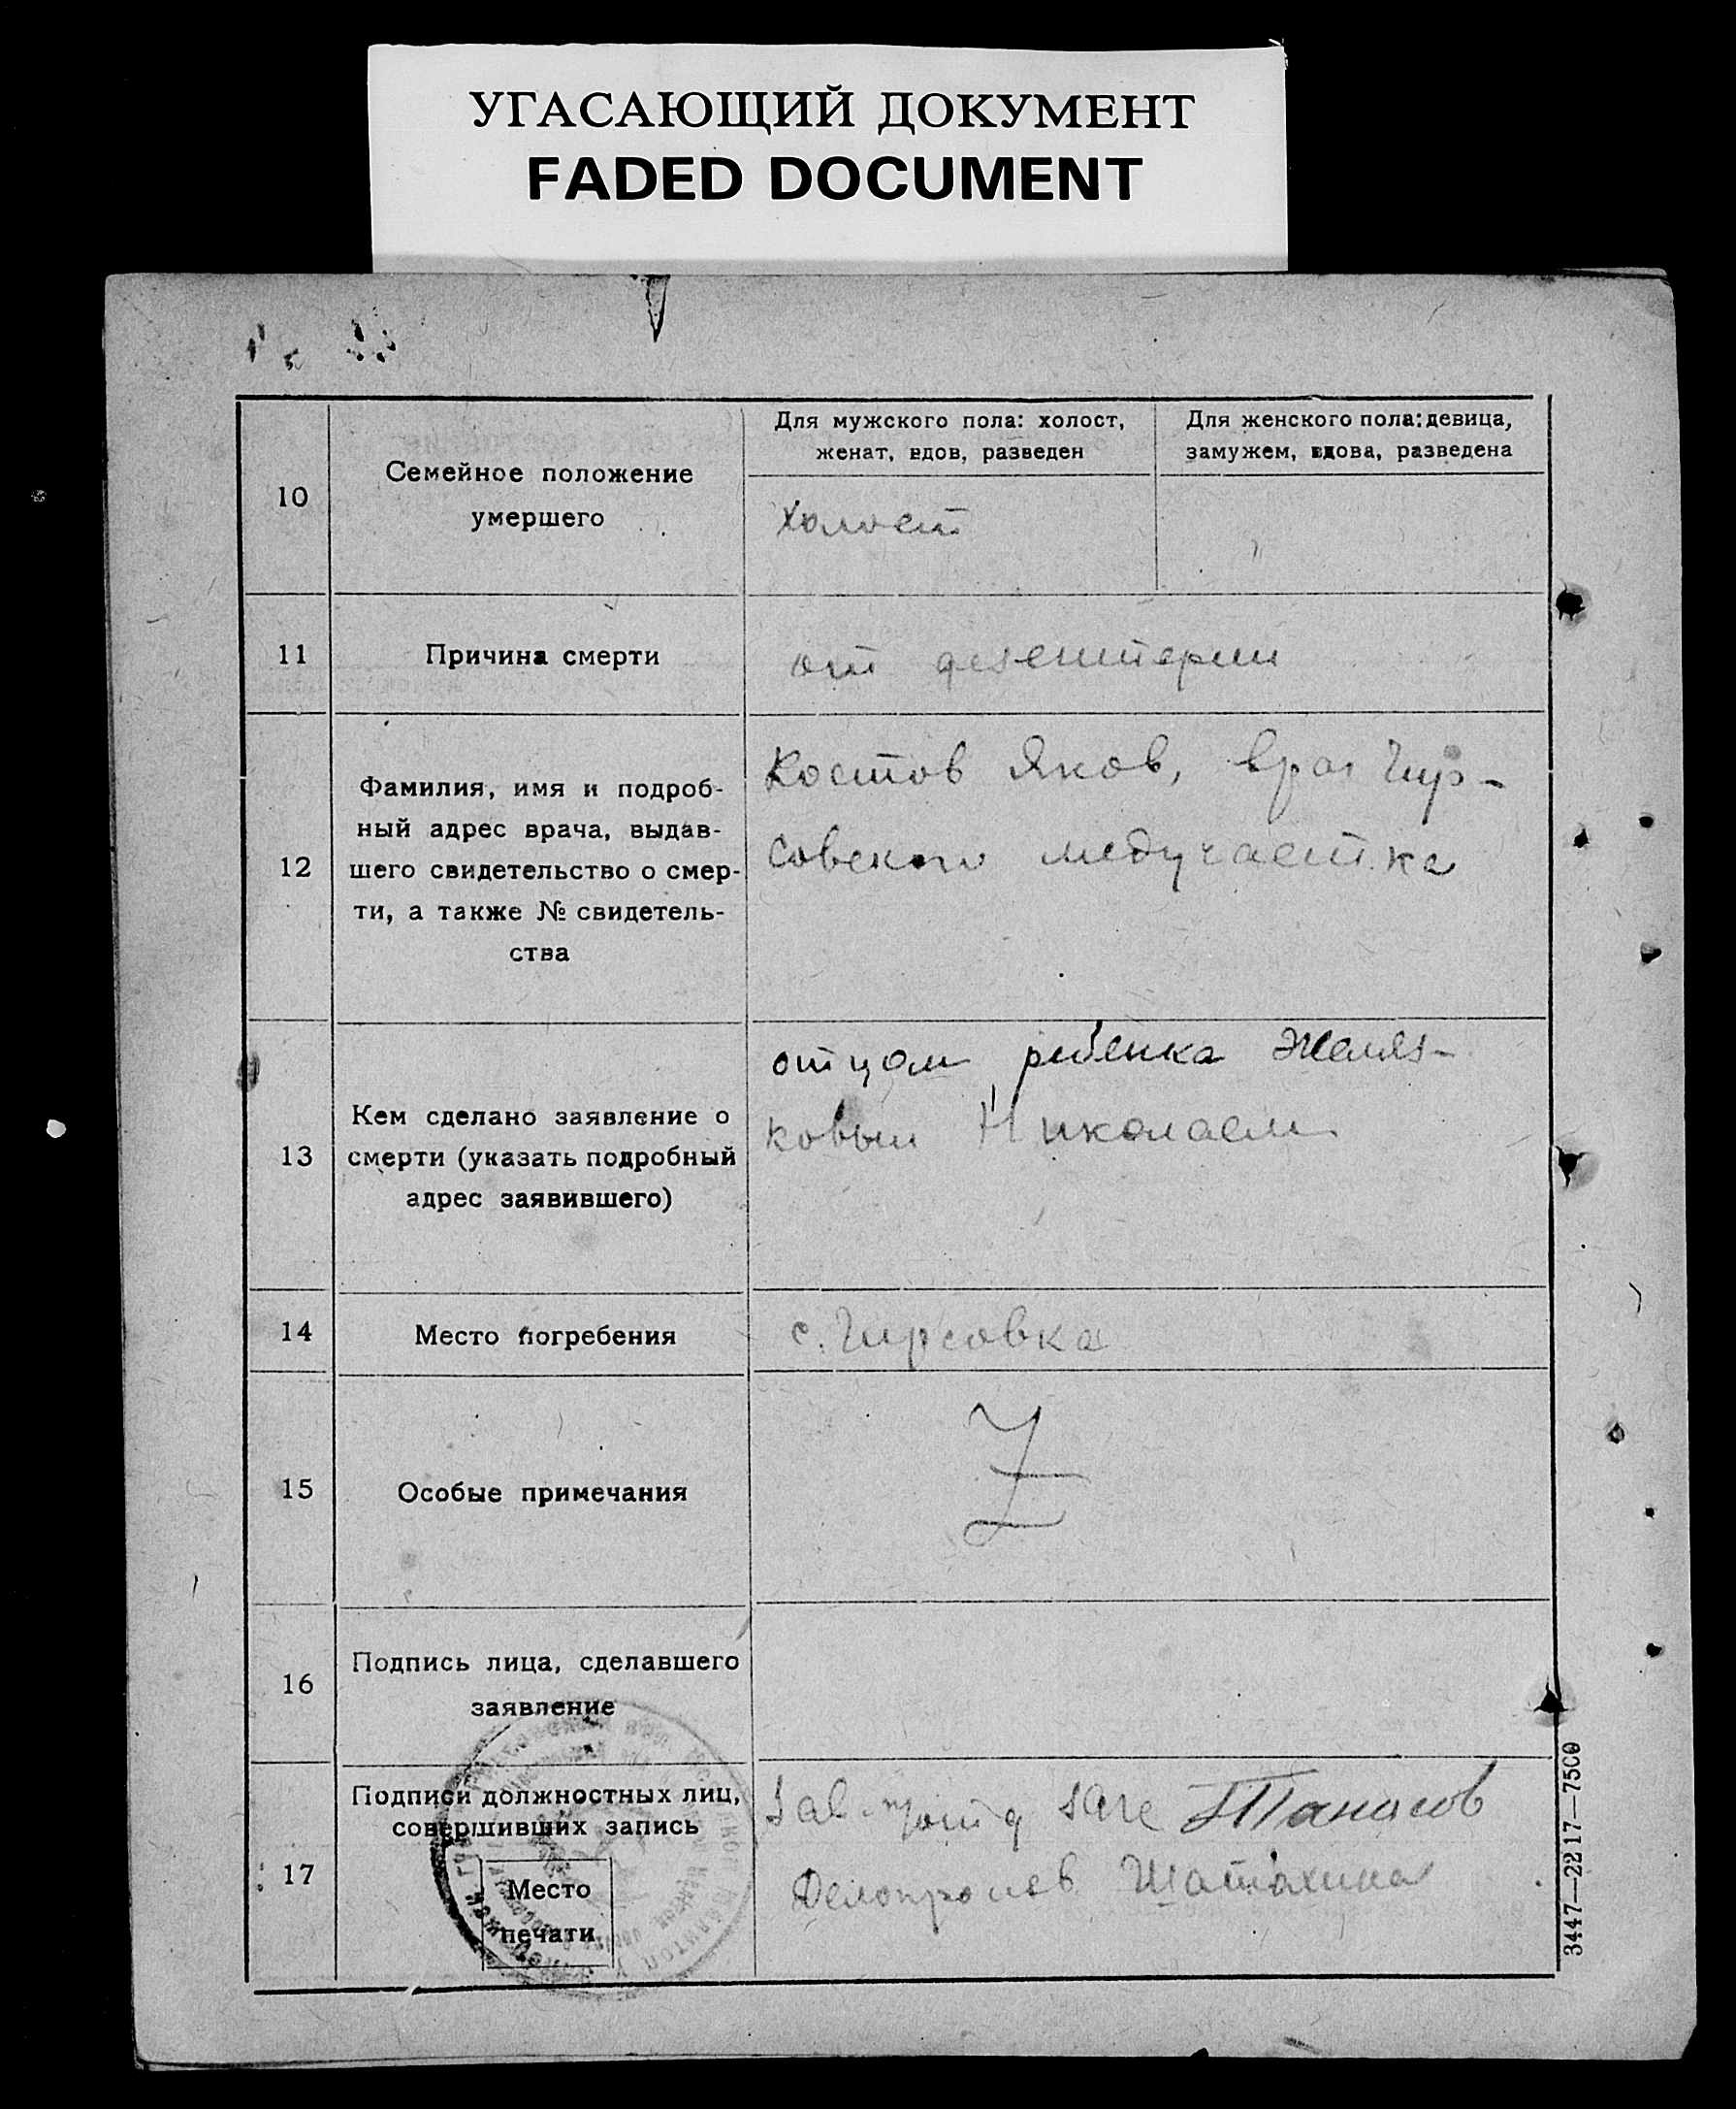 УГАСАЮЩИЙ ДОКУМЕНТ
FADED DOCUMENT
10
Семейное положение
умершего
Для мужского пола: холост,
женат, вдов, разведен
Для женского пола: девица,
замужем, вдова, разведена
холост
11
Причина смерти
от дезентерии
12
Фамилия, имя и подроб-
ный адрес врача, выдав-
шего свидетельство о смер-
ти, а также № свидетель-
ства
Костов Яков, врач Чир-
совского медучастка
13
Кем сделано заявление о
смерти (указать подробный
адрес заявившего)
отцом ребенка Желяз-
ковым Николаем
14
Место погребения
с. Чирсовка
15
Особые примечания
Z
16
Подпись лица, сделавшего
заявление
17
Подписи должностных лиц,
совершивших запись
Место
печати
Танасов
Делопроизв
3447—2217—7500